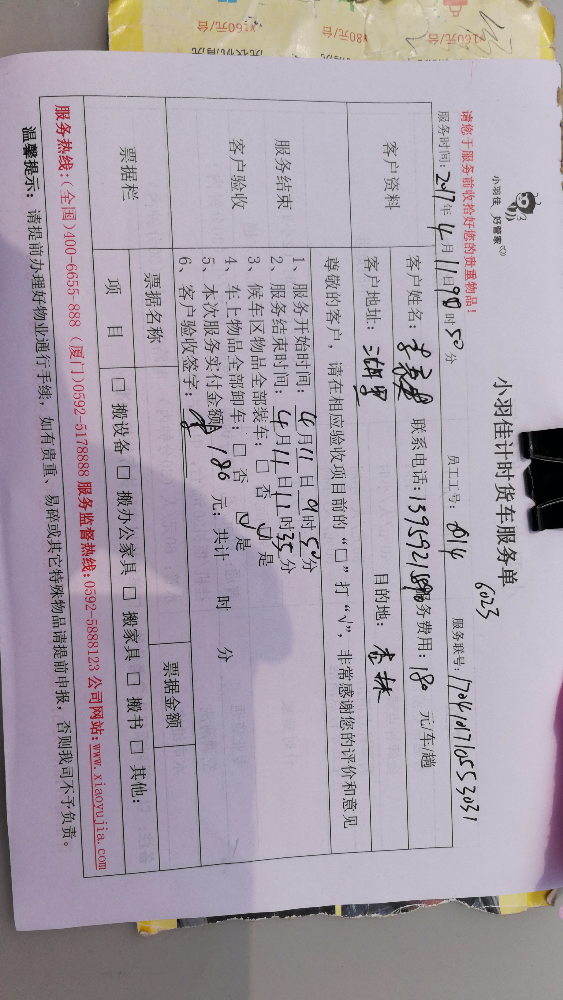 ¥160元/台 ¥80元/台 ¥160元/台
小羽佳 好管家
小羽佳计时货车服务单
6023
请您于服务前收拾好您的贵重物品！
服务时间：2017年4月11日9时50分 员工工号：2014 服务联号：170401710553031
客户资料 客户姓名： 联系电话： 服务费用：180元/车/趟
客户地址： 目的地：杏林
尊敬的客户，请在相应验收项目前的“□”打“√”，非常感谢您的评价和意见
服务结束
客户验收
1、服务开始时间：4月11日9时50分
2、服务结束时间：4月11日11时35分
3、候车区物品全部装车：□否 ☑是
4、车上物品全部卸车：□否 ☑是
5、本次服务实付金额 180元；共计 时 分
6、客户验收签字：
票据栏 票据名称 票据金额
项目 □搬设备 □搬办公家具 □搬家具 □搬书 □其他：
服务热线：(全国)400-6655-888 (厦门)0592-5178888 服务监督热线：0592-5888123 公司网站：www.xiaoyujia.com
温馨提示：请提前办理好物业通行手续，如有贵重、易碎或其它特殊物品请提前申报，否则我司不予负责。